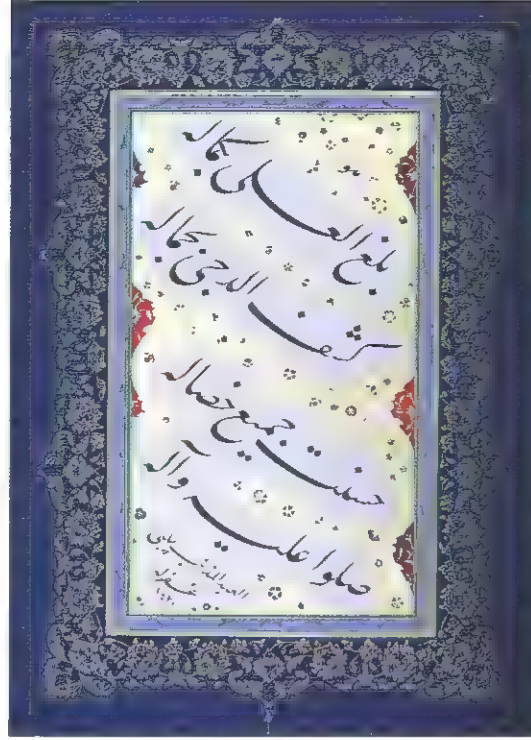 بلغ العلی بکماله
کشف الدجی بجماله
حسنت جمیع خصاله
صلوا علیه وآله
العبد المذنب